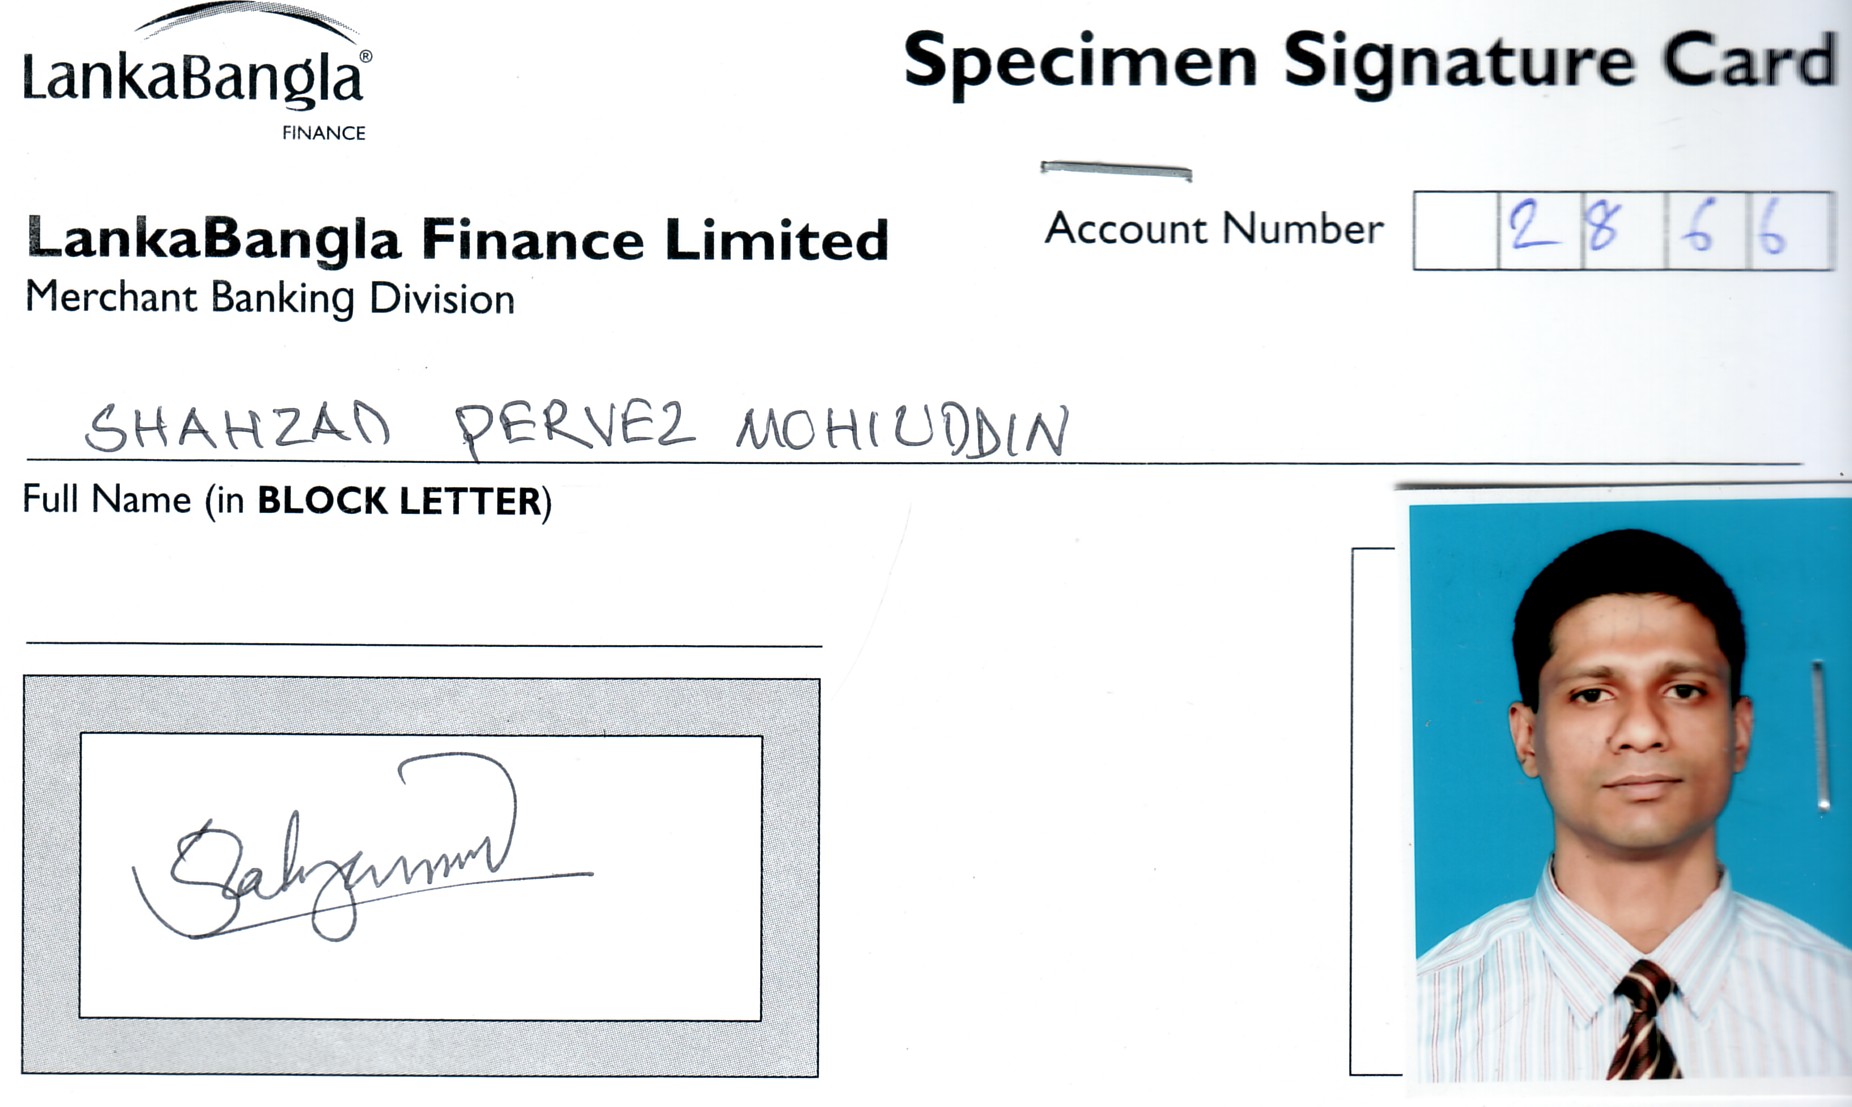 LankaBangla®
FINANCE
Specimen Signature Card
LankaBangla Finance Limited
Merchant Banking Division
Account Number 2866
SHAHZAD PERVEZ MOHIUDDIN
Full Name (in BLOCK LETTER)